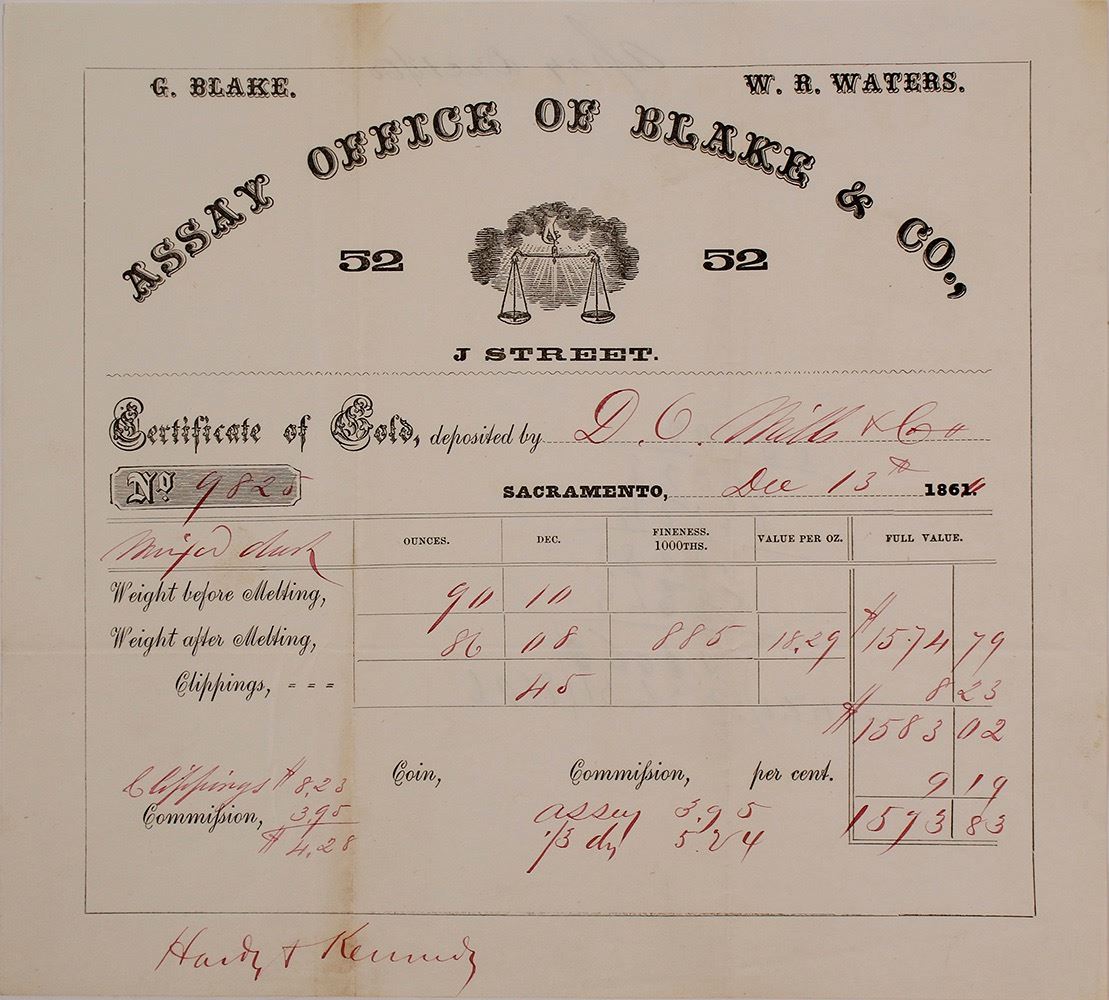 G. BLAKE. W. R. WATERS.
ASSAY OFFICE OF BLAKE & CO.,
52 52
J STREET.
Certificate of Gold, deposited by D. O. Mills & Co
No 9825 SACRAMENTO, Dec 13th 1861.
dust OUNCES. DEC. FINENESS. 1000THS. VALUE PER OZ. FULL VALUE.
Weight before Melting, 90 10
Weight after Melting, 86 08 885 18.29 $1574 79
Clippings, = = = 45 8 23
$1583 02
Coin, Commission, per cent. 9 19
Clippings $8.23
Commission, 3.95 assay 3.95 1593 83
$4.28 5.24
Hardy & Kennedy